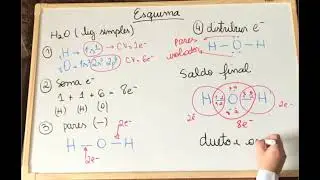 Esquema
H₂O (lig. simples)
① H → 1s¹ → CV=1e⁻
O → 1s² 2s² 2p⁴ CV=6e⁻
② Soma e⁻
1 + 1 + 6 = 8e⁻
(H) (H) (O)
③ pares (—)
2e⁻
H — O — H
2e⁻
④ distribuir e⁻
Pares isolados
H — O — H
Saldo final
H O H
2e⁻ 8e⁻ 2e⁻
dueto e